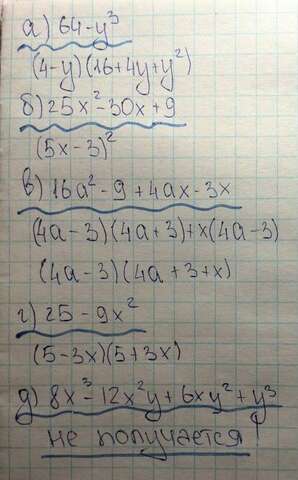 а) 64-y³
(4-y)(16+4y+y²)
б) 25x²-30x+9
(5x-3)²
в) 16a²-9+4ax-3x
(4a-3)(4a+3)+x(4a-3)
(4a-3)(4a+3+x)
г) 25-9x²
(5-3x)(5+3x)
д) 8x³-12x²y+6xy²+y³
не получается